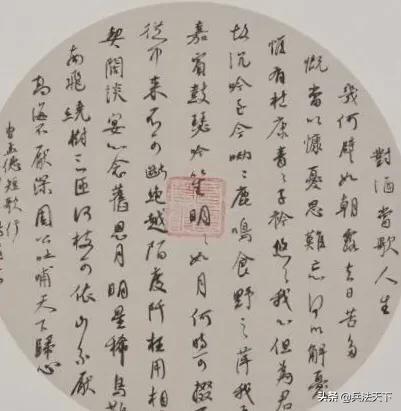 對酒當歌人生
幾何譬如朝露去日苦多
慨當以慷憂思難忘何以解憂
惟有杜康青々子衿悠々我心但為君
故沉吟至今呦々鹿鳴食野之苹我
嘉賓鼓瑟吹笙明々如月何時可掇
從中來不可斷絕越陌度阡枉用相
契闊談宴心念舊恩月明星稀烏
南飛繞樹三匝何枝可依山不厭
高海不厭深周公吐哺天下歸心
曹孟德短歌行
头条 @兵法天下